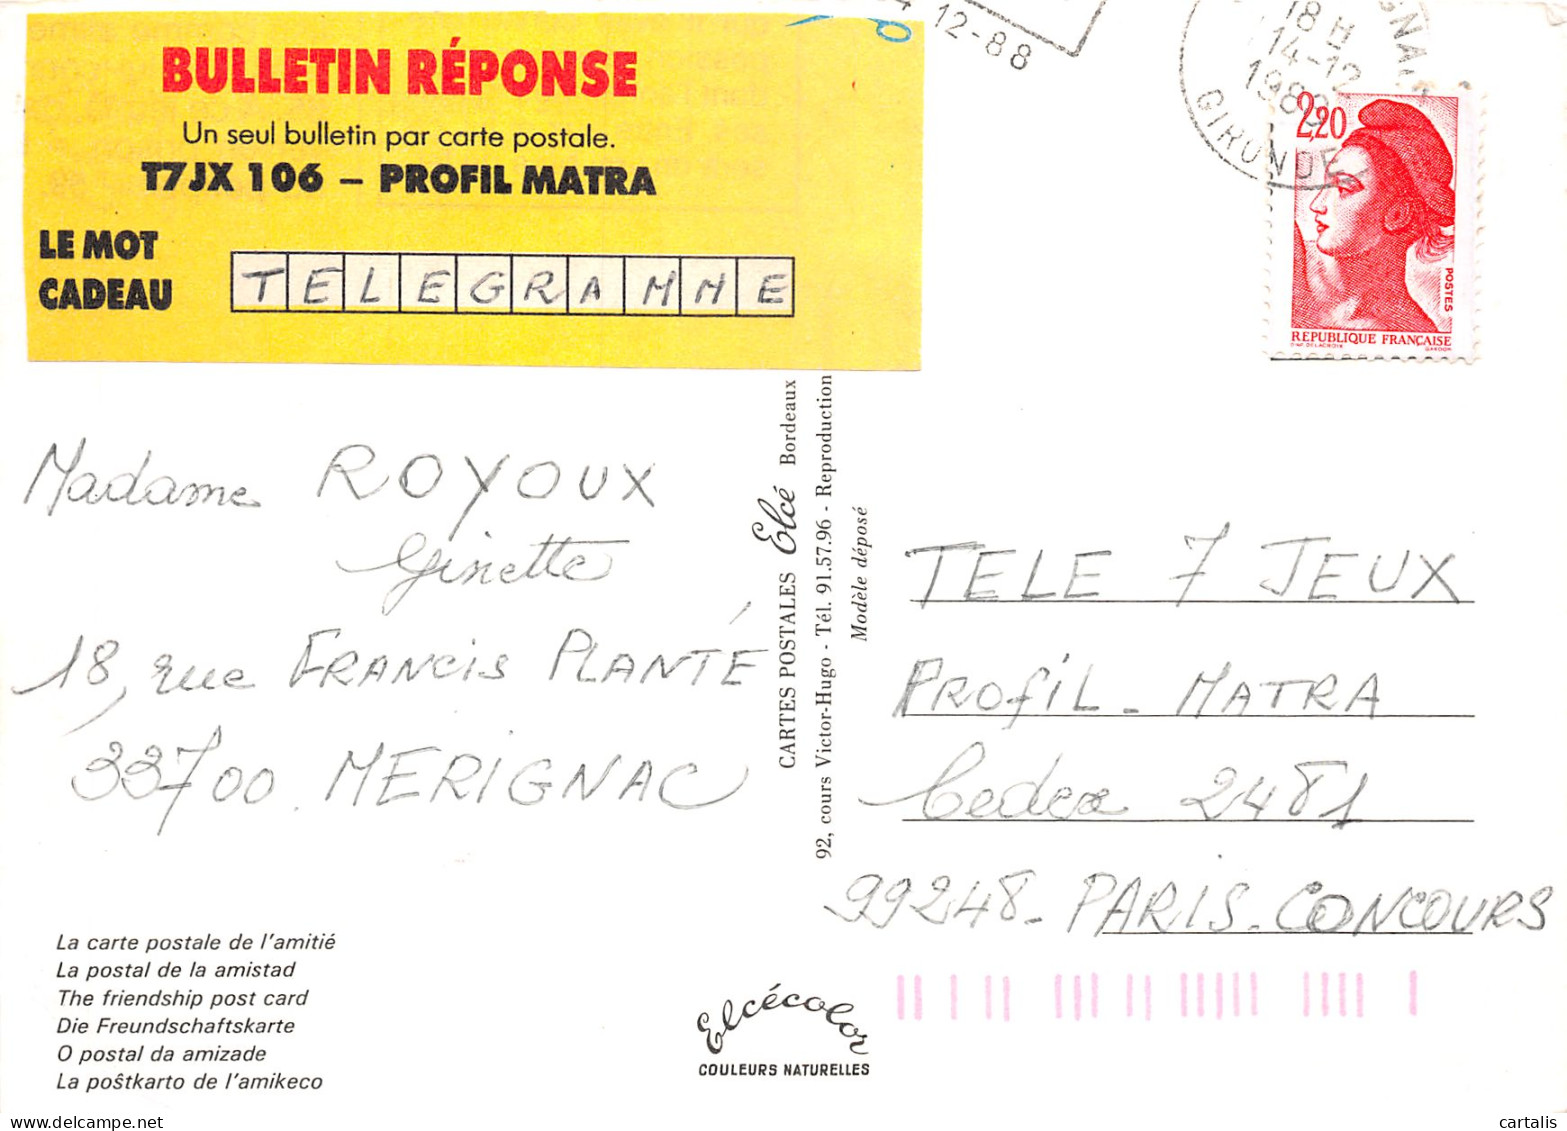 BULLETIN RÉPONSE
Un seul bulletin par carte postale.
T7JX 106 – PROFIL MATRA
LE MOT
CADEAU
TELEGRAMME
12-88
18 H
14-12
1988
GIRONDE
2,20
POSTES
REPUBLIQUE FRANÇAISE
D'AP. DELACROIX GANDON
Madame ROYOUX
Ginette
18, rue FRANCIS PLANTÉ
33700 MERIGNAC
CARTES POSTALES Elcé Bordeaux
92, cours Victor-Hugo - Tél. 91.57.96 - Reproduction
Modèle déposé
TELE 7 JEUX
PROFIL - MATRA
Cedex 2481
99248 - PARIS - CONCOURS
La carte postale de l'amitié
La postal de la amistad
The friendship post card
Die Freundschaftskarte
O postal da amizade
La poŝtkarto de l'amikeco
Elcécolor
COULEURS NATURELLES
cartalis